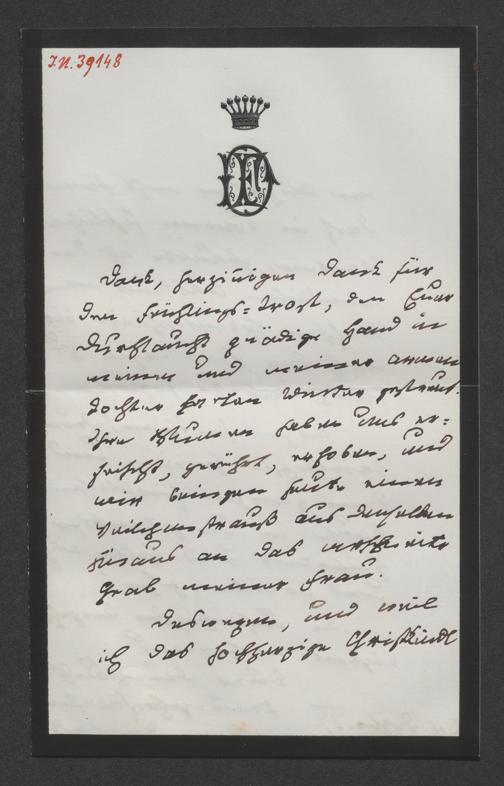 I.N. 39148
Dank, herzinnigen Dank für
den Frühlings=Trost, den Euer
Durchlaucht gnädige Hand in
meinen und meiner armen
Tochter herben Winter gestreut.
Ihre Blumen haben uns er=
frischt, gerührt, erhoben, und
wir bringen heute einen
Veilchenstrauß aus denselben
hinaus an das verschneite
Grab meiner Frau.
Deswegen, und weil
ich das hochherzige Christkindl